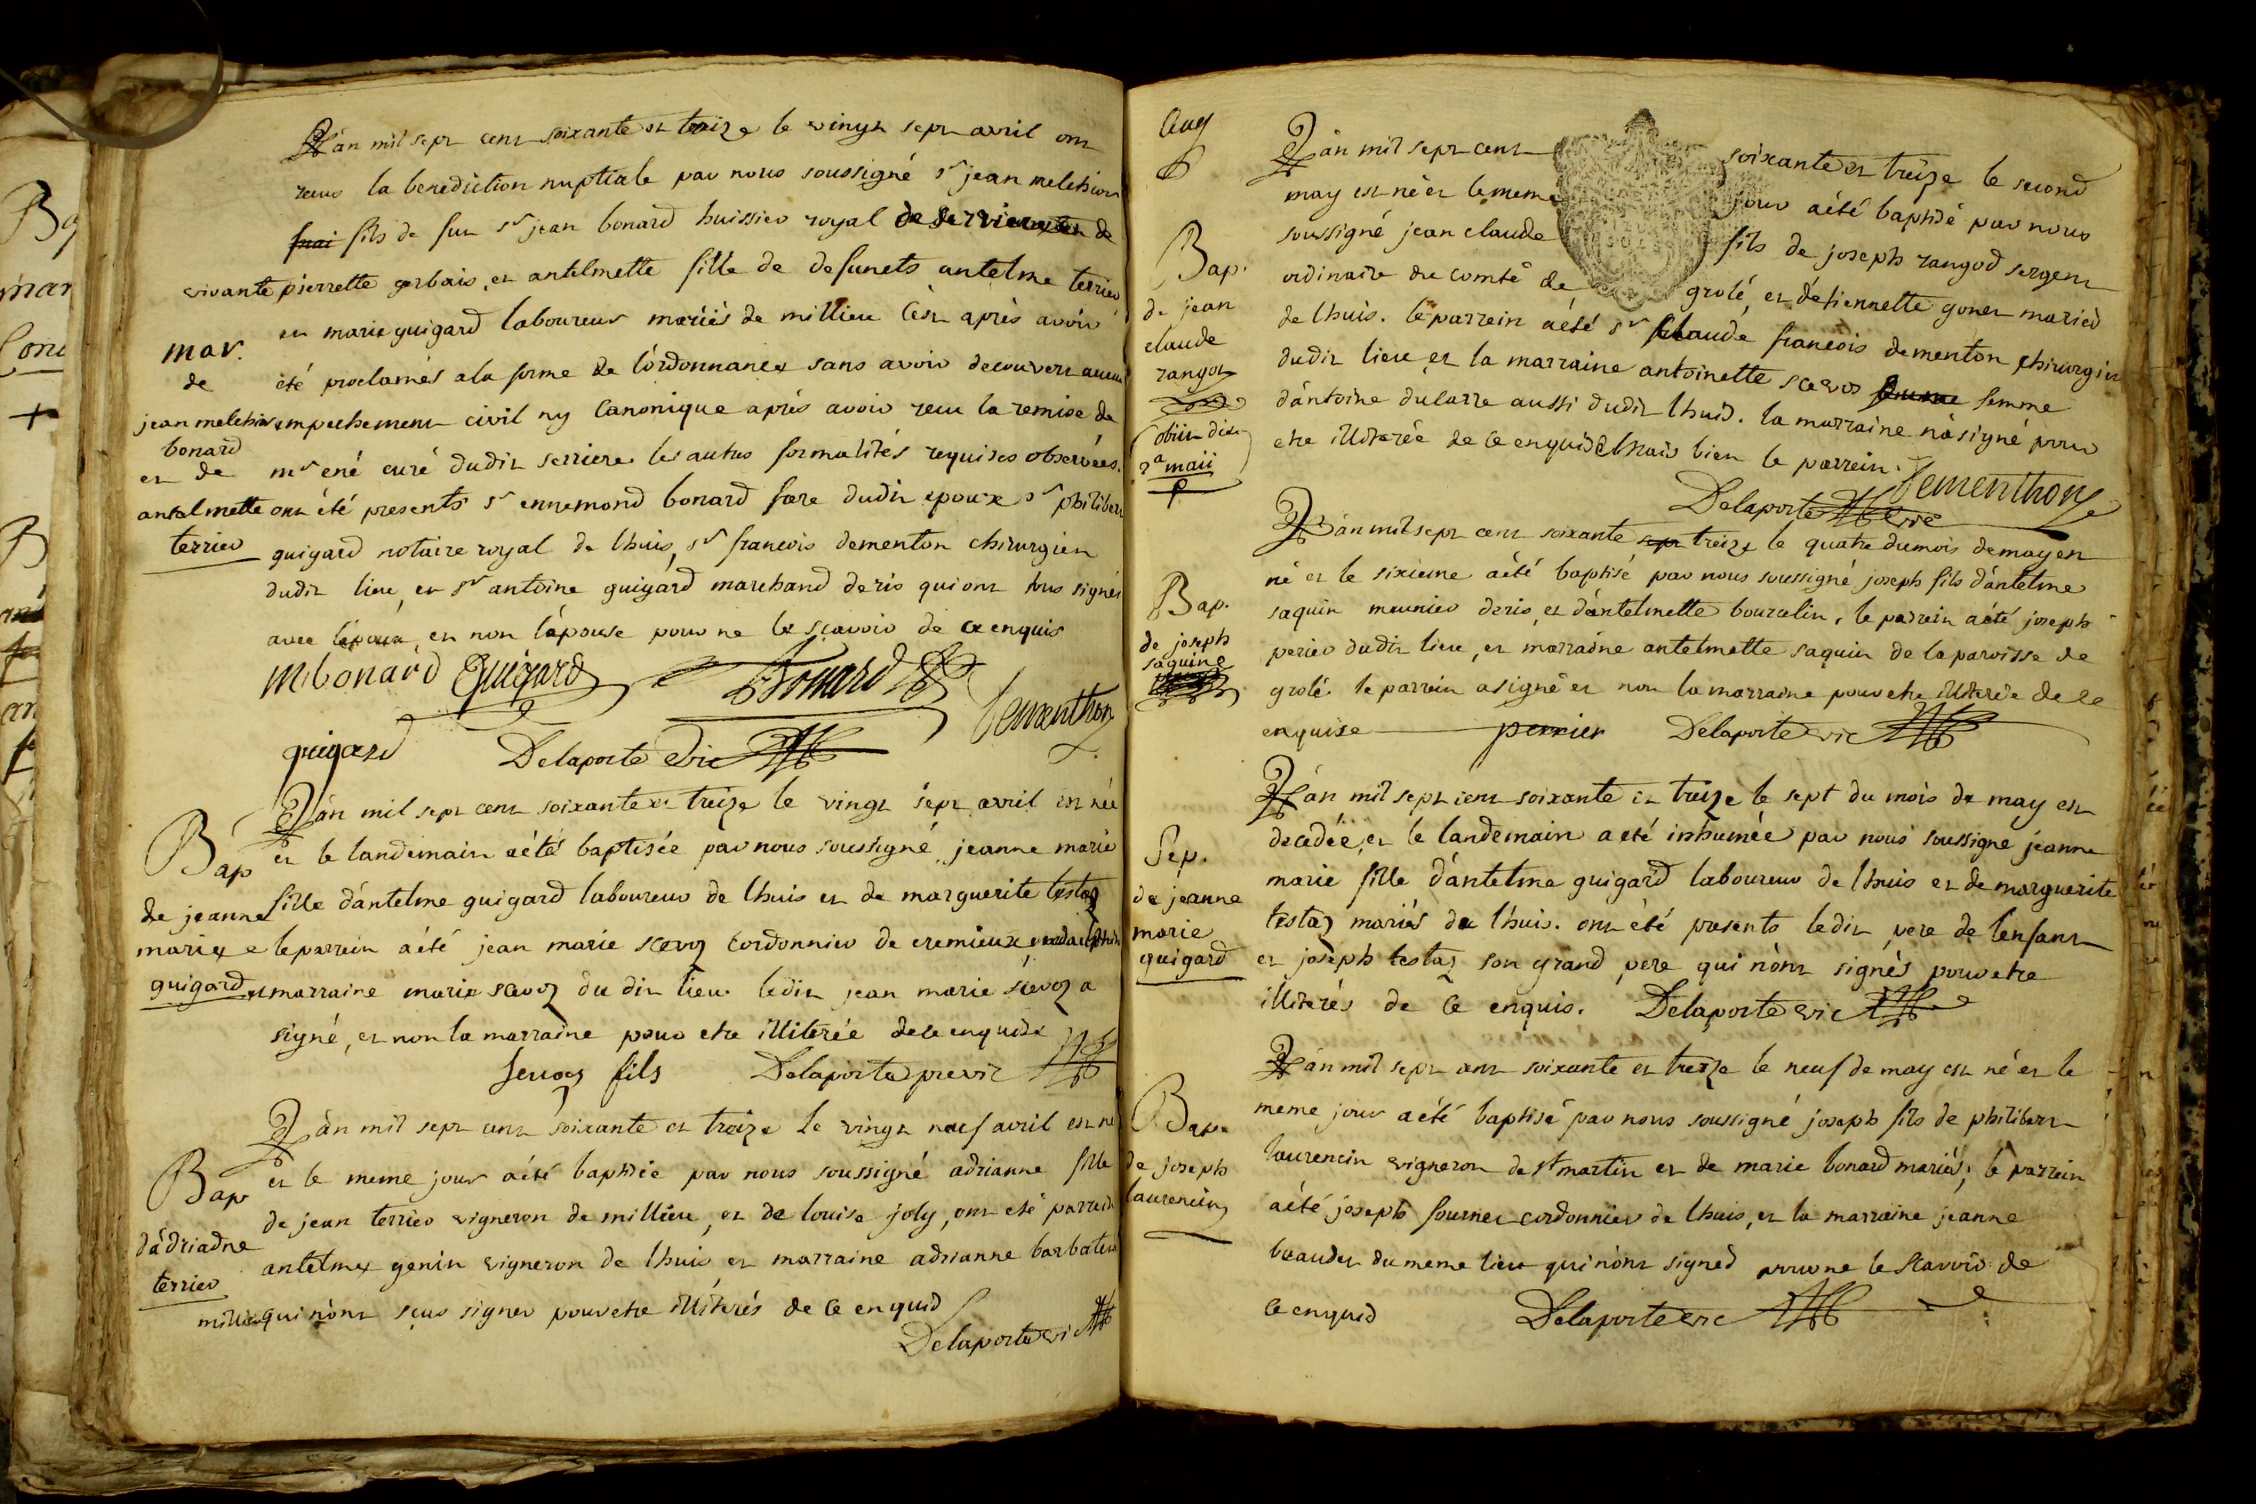 L'an mil sept cent soixante et treize le vingt sept avril ont
recus la benediction nuptiale par nous soussigné sr jean melchior
fils de feu sr jean bonard huissier royal de serrieres et de
vivante pierrette gerbais, et antelmette fille de defunets antelme terrier
et marie guigard laboureur mariés de millieu c'est après avoir
mar.
de
jean melchior
bonard
et de
antelmette
terrier
été proclamés a la forme de l'ordonnance sans avoir decouvert aucun
empechement civil ny Canonique aprés avoir recu la remise de
mr ené curé dudit serriere les autres formalités requises observées.
ont été presents sr ennemond bonard frere dudit epoux sr philibert
guigard notaire royal de lhuis, sr francois dementon chirurgien
dudit lieu, et sr antoine guigard marchand de ris qui ont tous signés
avec l'epoux, et non l'épouse pour ne le scavoir de ce enquis
Mbonard Guigard Bonard Dementhon
guigard Delaporte vic
Bap
de jeanne
marie
guigard
L'an mil sept cent soixante et treize le vingt sept avril est née
et le landemain a été baptisée par nous soussigné jeanne marie
fille d'antelme guigard laboureur de lhuis et de marguerite testaz
le parrein a été jean marie scevoz cordonnier de cremieux
et marraine marie scevoz du dit lieu ledit jean marie scevoz a
signé, et non la marraine pour etre illiterée de ce enquise
sevoz fils Delaporte vic
Bap
d'adrianne
terrier
millieu
L'an mil sept cent soixante et treize le vingt neuf avril est né
et le meme jour a été baptisée par nous soussigné adrianne fille
de jean terrier vigneron de millieu, et de louise joly, ont eté parrein
antelme genin vigneron de lhuis et marraine adrianne barbatier
qui n'ont sçus signer pour etre illiterés de ce enquis
Delaporte vic
Bap.
de jean
claude
rangot
obiit die
2a maii
L'an mil sept cent soixante et treize le second
may est né et le meme jour a été baptisé par nous
soussigné jean claude fils de joseph rangod sergent
ordinaire du comté de grolé, et d'etiennette gonet mariés
de lhuis. le parrein a été sr claude francois dementon chirurgien
dudit lieu et la marraine antoinette scevos femme
d'antoine dularre aussi dudit lhuis. la marraine n'a signé pour
etre illiterée de ce enquise mais bien le parrein.
Dementhon
Delaporte vic
Bap.
de joseph
saquin
L'an mil sept cent soixante sept treize le quatre du mois de may est
né et le sixieme a été baptisé par nous soussigné joseph fils d'antelme
saquin meunier de ris, et d'antelmette bourcelin, le parrein a été joseph
perier dudit lieu, et marraine antelmette saquin de la paroisse de
grolé. le parrein a signé et non la marraine pour etre illiterée de ce
enquise perrier Delaporte vic
Sep.
de jeanne
marie
guigard
L'an mil sept cent soixante et treize le sept du mois de may est
decedée, et le landemain a eté inhumée par nous soussigné jeanne
marie fille d'antelme guigard laboureur de lhuis et de marguerite
testaz mariés de lhuis. ont été presents ledit pere de l'enfant
et joseph testaz son grand pere qui n'ont signés pour etre
illiterés de ce enquis. Delaporte vic
Bap.
de joseph
laurencin
L'an mil sept cent soixante et treize le neuf de may est né et le
meme jour a été baptisé par nous soussigné joseph fils de philibert
laurencin vigneron de st martin et de marie bonard mariés; le parrein
a été joseph fournet cordonnier de lhuis, et la marraine jeanne
beaudet du meme lieu qui n'ont signed pour ne le scavoir de
ce enquis Delaporte vic